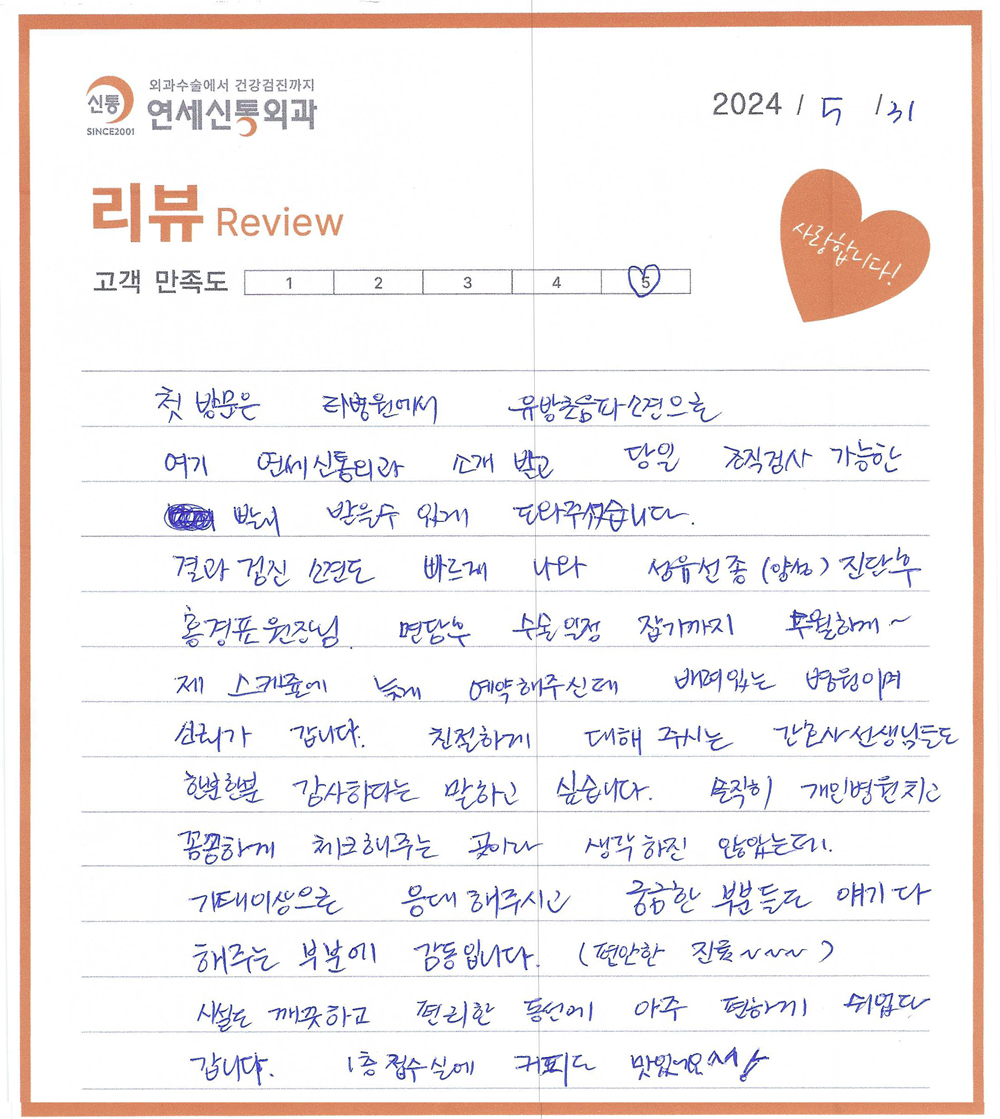 신통
SINCE2001
외과수술에서 건강검진까지
연세신통외과
2024 / 5 / 31
리뷰 Review
사랑합니다!
고객 만족도 1 2 3 4 5
첫 방문은 타병원에서 유방초음파소견으로
여기 연세신통외과 소개 받고 당일 조직검사 가능한
받을수 있게 도와주셨습니다.
결과 검진 소견도 빠르게 나와 섬유선종 (양성) 진단후
홍경표 원장님 면담후 수술일정 잡기까지 수월하게~
제 스케쥴에 맞게 예약해주신데 배려있는 병원이며
신뢰가 갑니다. 친절하게 대해 주시는 간호사선생님들도
한분한분 감사하다는 말하고 싶습니다. 솔직히 개인병원치고
꼼꼼하게 체크해주는 곳이라 생각하진 않았는데.
기대이상으로 응대해주시고 궁금한 부분들도 얘기다
해주는 부분에 감동입니다. (편안한 진료~~~)
시설도 깨끗하고 편리한 동선에 아주 편하게 쉬었다
갑니다. 1층 접수실에 커피도 맛있어요